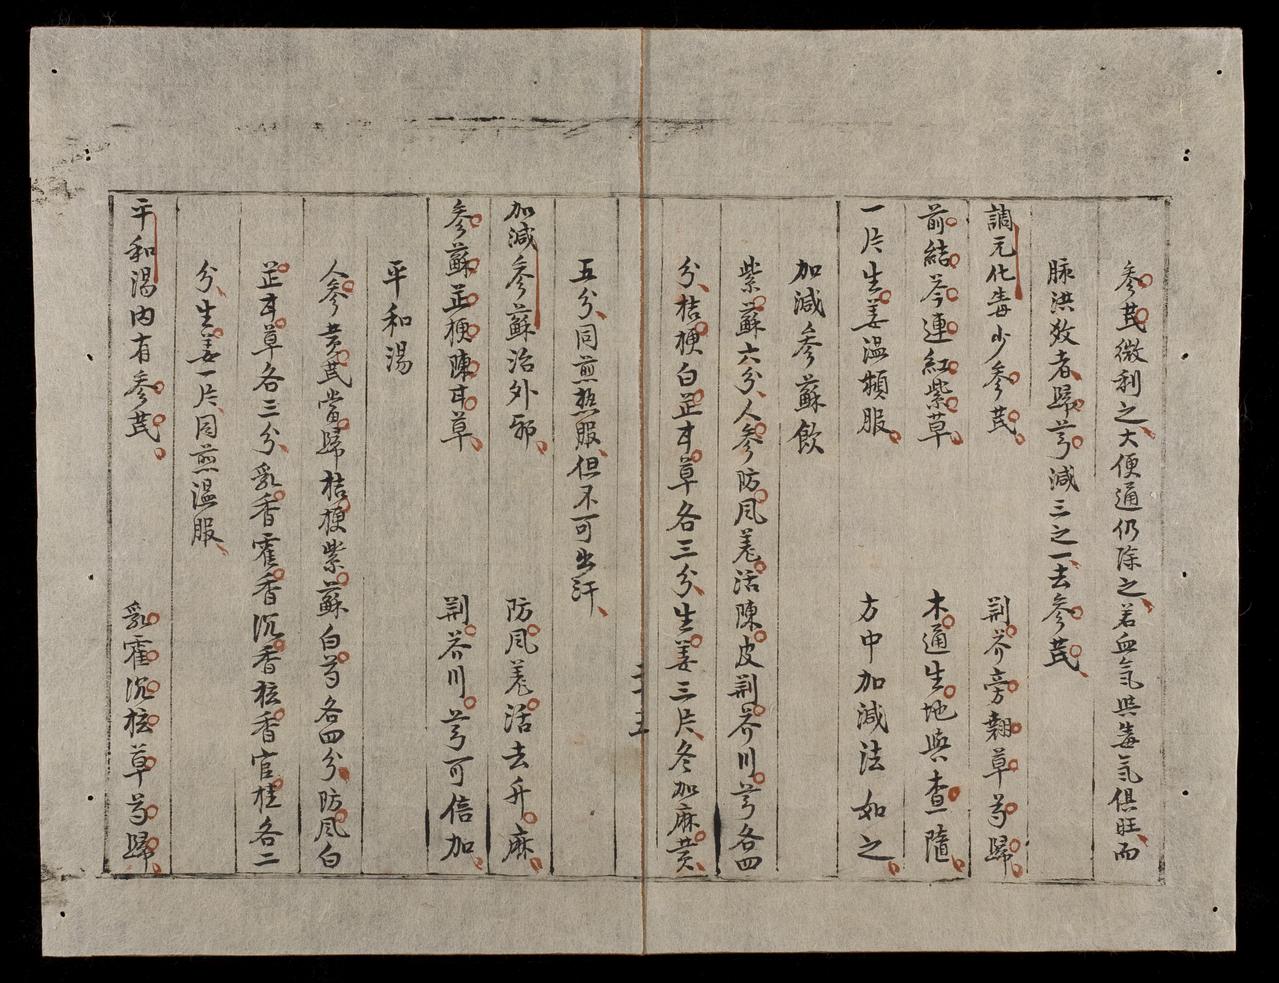 參芪微利之大便通仍除之若血氣與毒氣俱旺而
脉洪數者歸芎減三之一去參芪
調元化毒少參芪 荆芥旁翹草芍歸
前結芩連紅紫草 木通生地與查隨
一片生姜温頻服 方中加減法如之
加減參蘇飲
紫蘇六分人參防風羗活陳皮荆芥川芎各四
分桔梗白芷甘草各三分生姜三片冬加麻黄
二十五
五分同煎热服但不可出汗
加減參蘇治外邪 防風羗活去升麻
參蘇芷梗陳甘草 荆芥川芎可倍加
平和湯
人參黄芪當歸桔梗紫蘇白芍各四分防風白
芷甘草各三分乳香霍香沉香枟香官桂各二
分生姜一片同煎温服
平和湯内有參芪 乳霍沉枟草芍歸